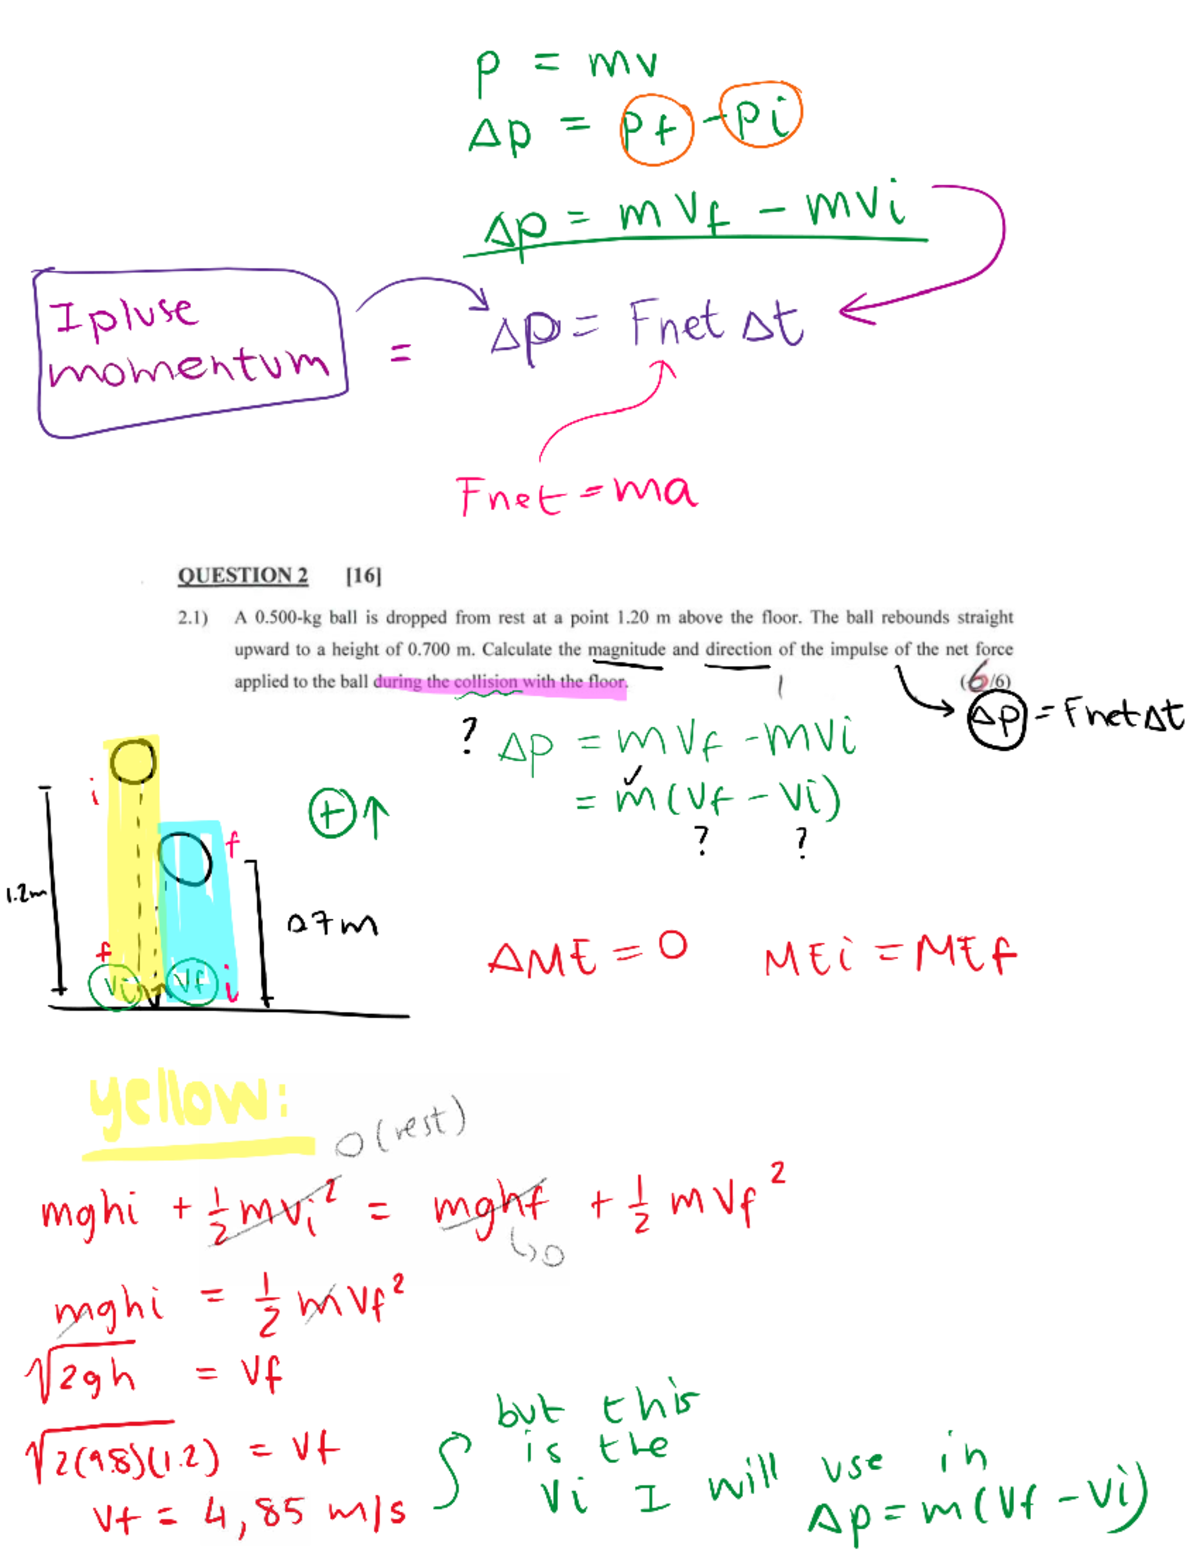 p = mv
Δp = pf - pi
Δp = mVf - mVi
Ipluse
momentum = Δp = Fnet Δt
Fnet = ma
QUESTION 2 [16]
2.1) A 0.500-kg ball is dropped from rest at a point 1.20 m above the floor. The ball rebounds straight
upward to a height of 0.700 m. Calculate the magnitude and direction of the impulse of the net force
applied to the ball during the collision with the floor. (6/6)
Δp = Fnet Δt
? Δp = mVf - mVi
= m(Vf - Vi)
? ?
i
+ ↑
f
1.2m
0.7m
f
Vi Vf i
ΔME = 0 MEi = MEf
yellow:
0 (rest)
mghi + ½mvi² = mghf + ½mVf²
↳0
mghi = ½mVf²
√2gh = Vf
√2(9.8)(1.2) = Vf
Vf = 4,85 m/s
but this
is the
Vi I will use in
Δp = m(Vf - Vi)